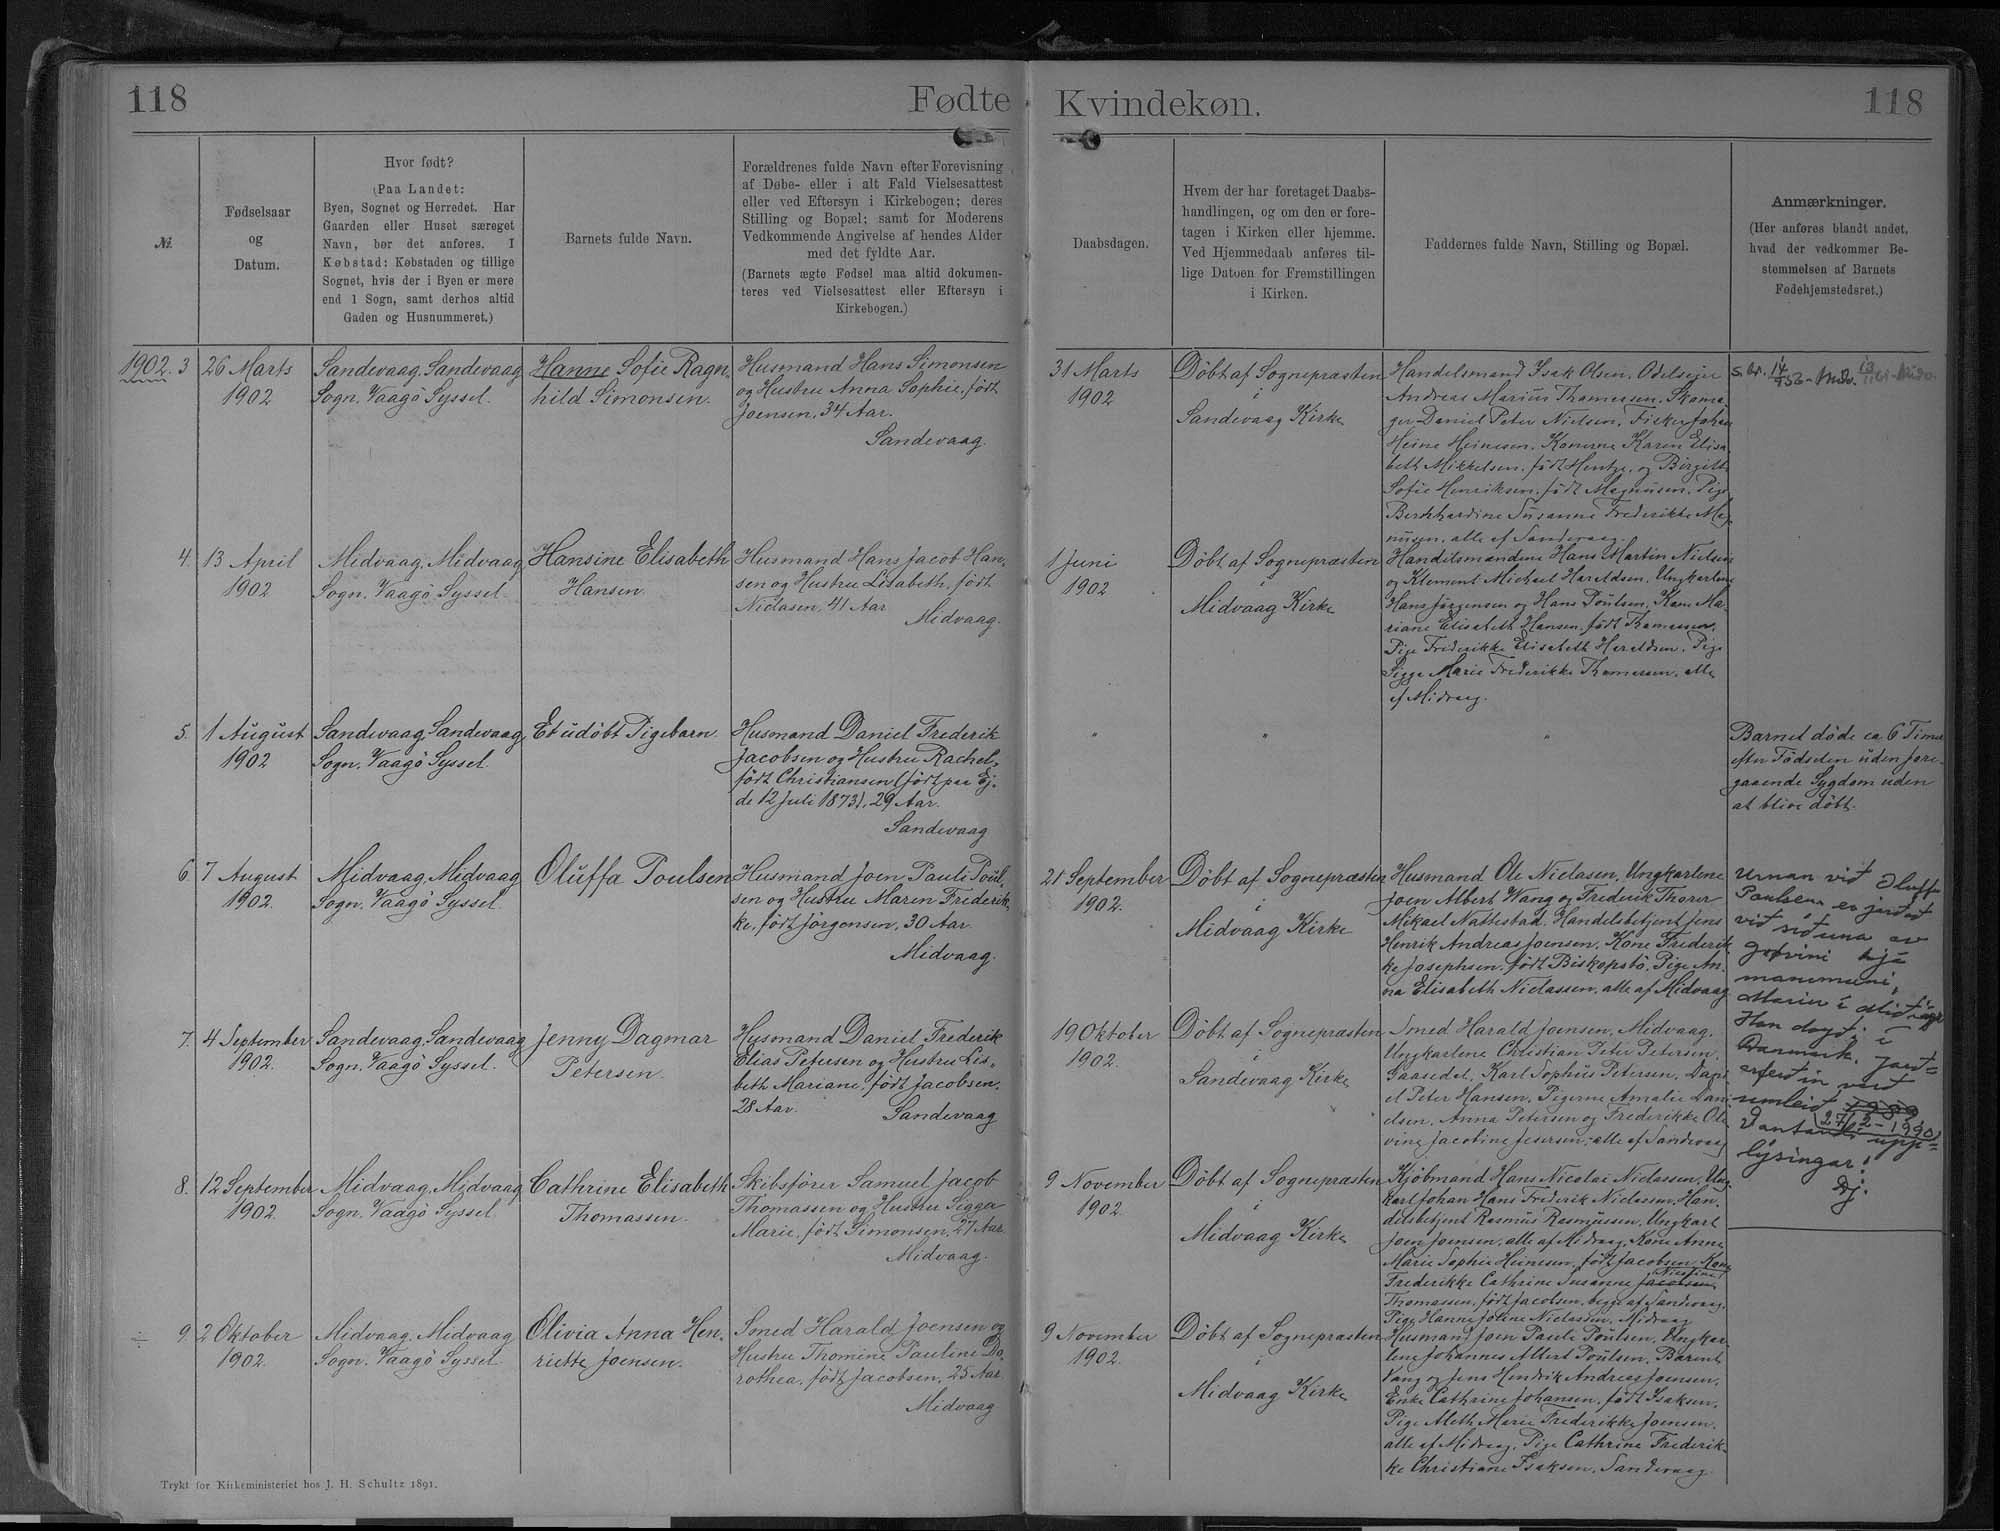 118
Fødte
Nr.
Fødselsaar
og
Datum.
Hvor født?
(Paa Landet:
Byen, Sognet og Herredet. Har
Gaarden eller Huset særeget
Navn, bør det anføres. I
Købstad: Købstaden og tillige
Sognet, hvis der i Byen er mere
end 1 Sogn, samt derhos altid
Gaden og Husnummeret.)
Barnets fulde Navn.
Forældrenes fulde Navn efter Forevisning
af Døbe- eller i alt Fald Vielsesattest
eller ved Eftersyn i Kirkebogen; deres
Stilling og Bopæl; samt for Moderens
Vedkommende Angivelse af hendes Alder
med det fyldte Aar.
(Barnets ægte Fødsel maa altid dokumen-
teres ved Vielsesattest eller Eftersyn i
Kirkebogen.)
1902. 3
26 Marts
1902
Sandevaag, Sandevaag
Sogn, Vaagö Syssel.
Hanne Sofie Ragn-
hild Simonsen.
Husmand Hans Simonsen
og Hustru Anna Sophie, født
Joensen, 34 Aar.
Sandevaag.
4.
13 April
1902
Midvaag, Midvaag
Sogn, Vaagö Syssel.
Hansine Elisabeth
Hansen.
Husmand Hans Jacob Han-
sen og Hustru Lisabeth, født
Niclasen, 41 Aar
Midvaag.
5.
1 August
1902
Sandevaag, Sandevaag
Sogn, Vaagö Syssel.
Et udöbt Pigebarn.
Husmand Daniel Frederik
Jacobsen og Hustru Rachel,
født Christiansen (født paa Ej-
de 12 Juli 1873), 29 Aar.
Sandevaag
6.
7 August
1902.
Midvaag, Midvaag
Sogn, Vaagö Syssel.
Oluffa Poulsen
Husmand Joen Pauli Poul-
sen og Hustru Maren Frederik-
ke, født Jörgensen, 30 Aar.
Midvaag.
7.
4 September
1902.
Sandevaag, Sandevaag
Sogn, Vaagö Syssel.
Jenny Dagmar
Petersen.
Husmand Daniel Frederik
Elias Petersen og Hustru Lis-
beth Mariane, født Jacobsen,
28 Aar.
Sandevaag
8.
12 September
1902.
Midvaag, Midvaag
Sogn, Vaagö Syssel.
Cathrine Elisabeth
Thomassen.
Skibsfører Samuel Jacob
Thomassen og Hustru Sigga
Marie, født Simonsen, 27 Aar.
Midvaag.
9.
2 Oktober
1902.
Midvaag, Midvaag
Sogn, Vaagö Syssel.
Olivia Anna Hen-
riette Joensen.
Smed Harald Joensen og
Hustru Thomine Pauline Do-
rothea, født Jacobsen, 25 Aar.
Midvaag
Trykt for Kirkeministeriet hos J. H. Schultz 1891.
Kvindekøn.
118
Daabsdagen.
Hvem der har foretaget Daabs-
handlingen, og om den er fore-
tagen i Kirken eller hjemme.
Ved Hjemmedaab anføres til-
lige Datoen for Fremstillingen
i Kirken.
Faddernes fulde Navn, Stilling og Bopæl.
Anmærkninger.
(Her anføres blandt andet,
hvad der vedkommer Be-
stemmelsen af Barnets
Fødehjemstedsret.)
31 Marts
1902
Döbt af Sognepræsten
i
Sandevaag Kirke
Handelsmand Isak Olsen, Odelsejer
Andreas Marius Thomassen, Skoma-
ger Daniel Peter Nielsen, Fisker Johan
Heine Heinesen, Konerne Karen Elisa-
beth Mikkelsen, født Hentze, og Birgitte
Sofie Henriksen, født Magnusen, Pige
Bernhardine Susanne Frederikke Mag-
nusen, alle af Sandevaag.
1 Juni
1902
Döbt af Sognepræsten
i
Midvaag Kirke
Handelsmændene Hans Martin Nielsen
og Klement Michael Haraldsen, Ungkarlene
Hans Jörgensen og Hans Poulsen, Kone Ma-
riane Elisabeth Hansen, født Thomassen,
Pige Frederikke Elisabeth Haraldsen, Pige
Sigga Marie Frederikke Thomassen, alle
af Midvaag.
Barnet döde ca 6 Timer
efter Födselen uden fore-
gaaende Sygdom uden
at blive döbt.
21 September
1902.
Döbt af Sognepræsten
i
Midvaag Kirke
Husmand Ole Niclasen, Ungkarlene
Joen Albert Wang og Frederik Thorer
Mikael Nattestad, Handelsbetjent Jens
Henrik Andreas Joensen, Kone Frederik-
ke Josephsen, født Biskopstö, Pige An-
na Elisabeth Niclassen, alle af Midvaag
Urnan við Oluffu
Poulsen er jarðað
við síðuna av
grövini hjá
mammuni,
Marin í Miðvági
Hon doyði í
Danmark. Jarð-
arferðin varð
umleið 1989
(27/2-1990)
Vantandi upp-
lýsingar!
Dj.
19 Oktober
1902.
Döbt af Sognepræsten
i
Sandevaag Kirke
Smed Harald Joensen, Midvaag.
Ungkarlene Christian Peter Petersen,
Gaasedal, Karl Sophus Petersen, Dani-
el Peter Hansen, Pigerne Amalie Dani-
elsen, Anna Petersen og Frederikke Ole-
vine Jacobine Jesersen, alle af Sandevaag
9 November
1902.
Döbt af Sognepræsten
i
Midvaag Kirke
Kjöbmand Hans Nicolai Niclassen, Ung-
karl Johan Hans Frederik Niclassen, Han-
delsbetjent Rasmus Rasmussen, Ungkarl
Joen Joensen, alle af Midvaag, Kone Anna
Marie Sophie Heinesen, født Jacobsen, Kone
Frederikke Cathrine Susanne Jacobsen
Thomassen, født Jacobsen, begge af Sandevaag,
Pige Hanne Joline Niclassen, Midvaag
9 November
1902.
Döbt af Sognepræsten
i
Midvaag Kirke
Husmand Joen Pauli Poulsen, Ungkar-
lene Johannes Albert Poulsen, Barent
Vang og Jens Hendrik Andreas Joensen,
Enke Cathrine Johansen, født Isaksen,
Pige Aleth Marie Frederikke Joensen,
alle af Midvaag, Pige Cathrine Frederik-
ke Christiane Isaksen, Sandevaag.